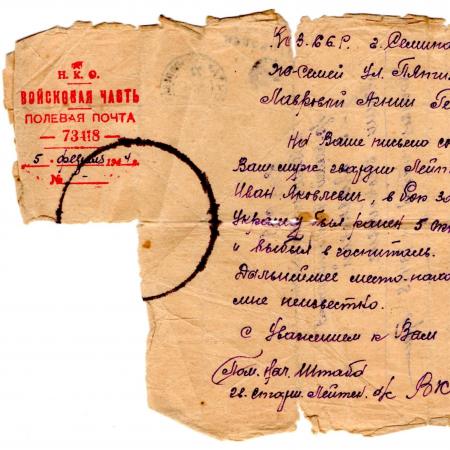 Н. К. О.
ВОЙСКОВАЯ ЧАСТЬ
ПОЛЕВАЯ ПОЧТА
— 73418 —
5 февраля 194 4 г.
№ -
Каз.ССР. г. Семипа
ул.
Лавровый Агнии Ге
На Ваше письмо со
Ваш муж гвардии Лейт
Иван Яковлевич, в бою за
Украину был ранен 5 ок
и выбыл в госпиталь.
Дальнейшее место-нахо
мне неизвестно.
С Уважением к Вам
Пом. Нач. Штаба
гв. Старш. Лейтен. а/с